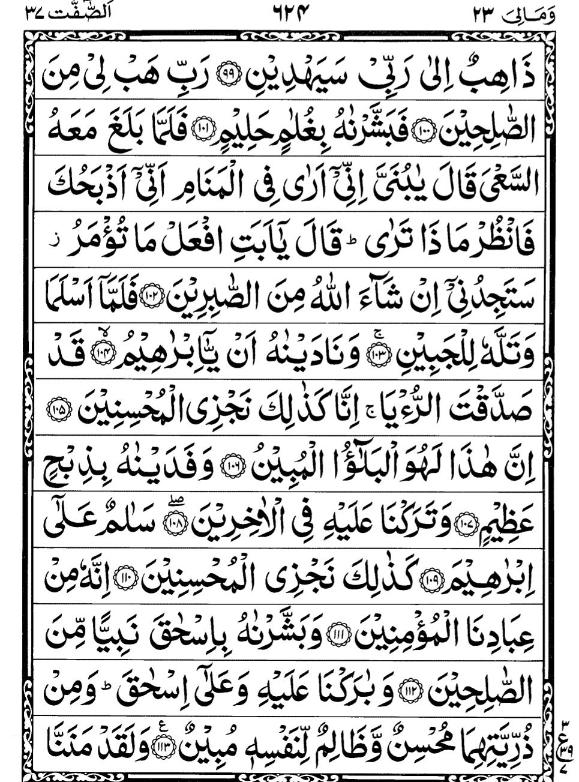 وَمَالِیَ ٢٣ ٦٢٤ اَلصّٰٓفّٰت ٣٧
ذَاهِبٌ اِلٰی رَبِّیْ سَیَهْدِیْنِ ۝٩٩ رَبِّ هَبْ لِیْ مِنَ
الصّٰلِحِیْنَ ۝١٠٠ فَبَشَّرْنٰهُ بِغُلٰمٍ حَلِیْمٍ ۝١٠١ فَلَمَّا بَلَغَ مَعَهُ
السَّعْیَ قَالَ یٰبُنَیَّ اِنِّیْۤ اَرٰی فِی الْمَنَامِ اَنِّیْۤ اَذْبَحُكَ
فَانْظُرْ مَا ذَا تَرٰی ؕ قَالَ یٰۤاَبَتِ افْعَلْ مَا تُؤْمَرُ ز
سَتَجِدُنِیْۤ اِنْ شَآءَ اللّٰهُ مِنَ الصّٰبِرِیْنَ ۝١٠٢ فَلَمَّاۤ اَسْلَمَا
وَتَلَّهٗ لِلْجَبِیْنِ ۝١٠٣ۚ وَنَادَیْنٰهُ اَنْ یّٰۤاِبْرٰهِیْمُ ۝١٠٤ۙ قَدْ
صَدَّقْتَ الرُّءْیَا ۚ اِنَّا كَذٰلِكَ نَجْزِی الْمُحْسِنِیْنَ ۝١٠٥
اِنَّ هٰذَا لَهُوَ الْبَلٰٓؤُا الْمُبِیْنُ ۝١٠٦ وَفَدَیْنٰهُ بِذِبْحٍ
عَظِیْمٍ ۝١٠٧ وَتَرَكْنَا عَلَیْهِ فِی الْاٰخِرِیْنَ ۝١٠٨ۖ سَلٰمٌ عَلٰۤی
اِبْرٰهِیْمَ ۝١٠٩ كَذٰلِكَ نَجْزِی الْمُحْسِنِیْنَ ۝١١٠ اِنَّهٗ مِنْ
عِبَادِنَا الْمُؤْمِنِیْنَ ۝١١١ وَبَشَّرْنٰهُ بِاِسْحٰقَ نَبِیًّا مِّنَ
الصّٰلِحِیْنَ ۝١١٢ وَبٰرَكْنَا عَلَیْهِ وَعَلٰۤی اِسْحٰقَ ؕ وَمِنْ
ذُرِّیَّتِهِمَا مُحْسِنٌ وَّظَالِمٌ لِّنَفْسِهٖ مُبِیْنٌ ۝١١٣ع وَلَقَدْ مَنَنَّا
٣
ع ٣٩
٧